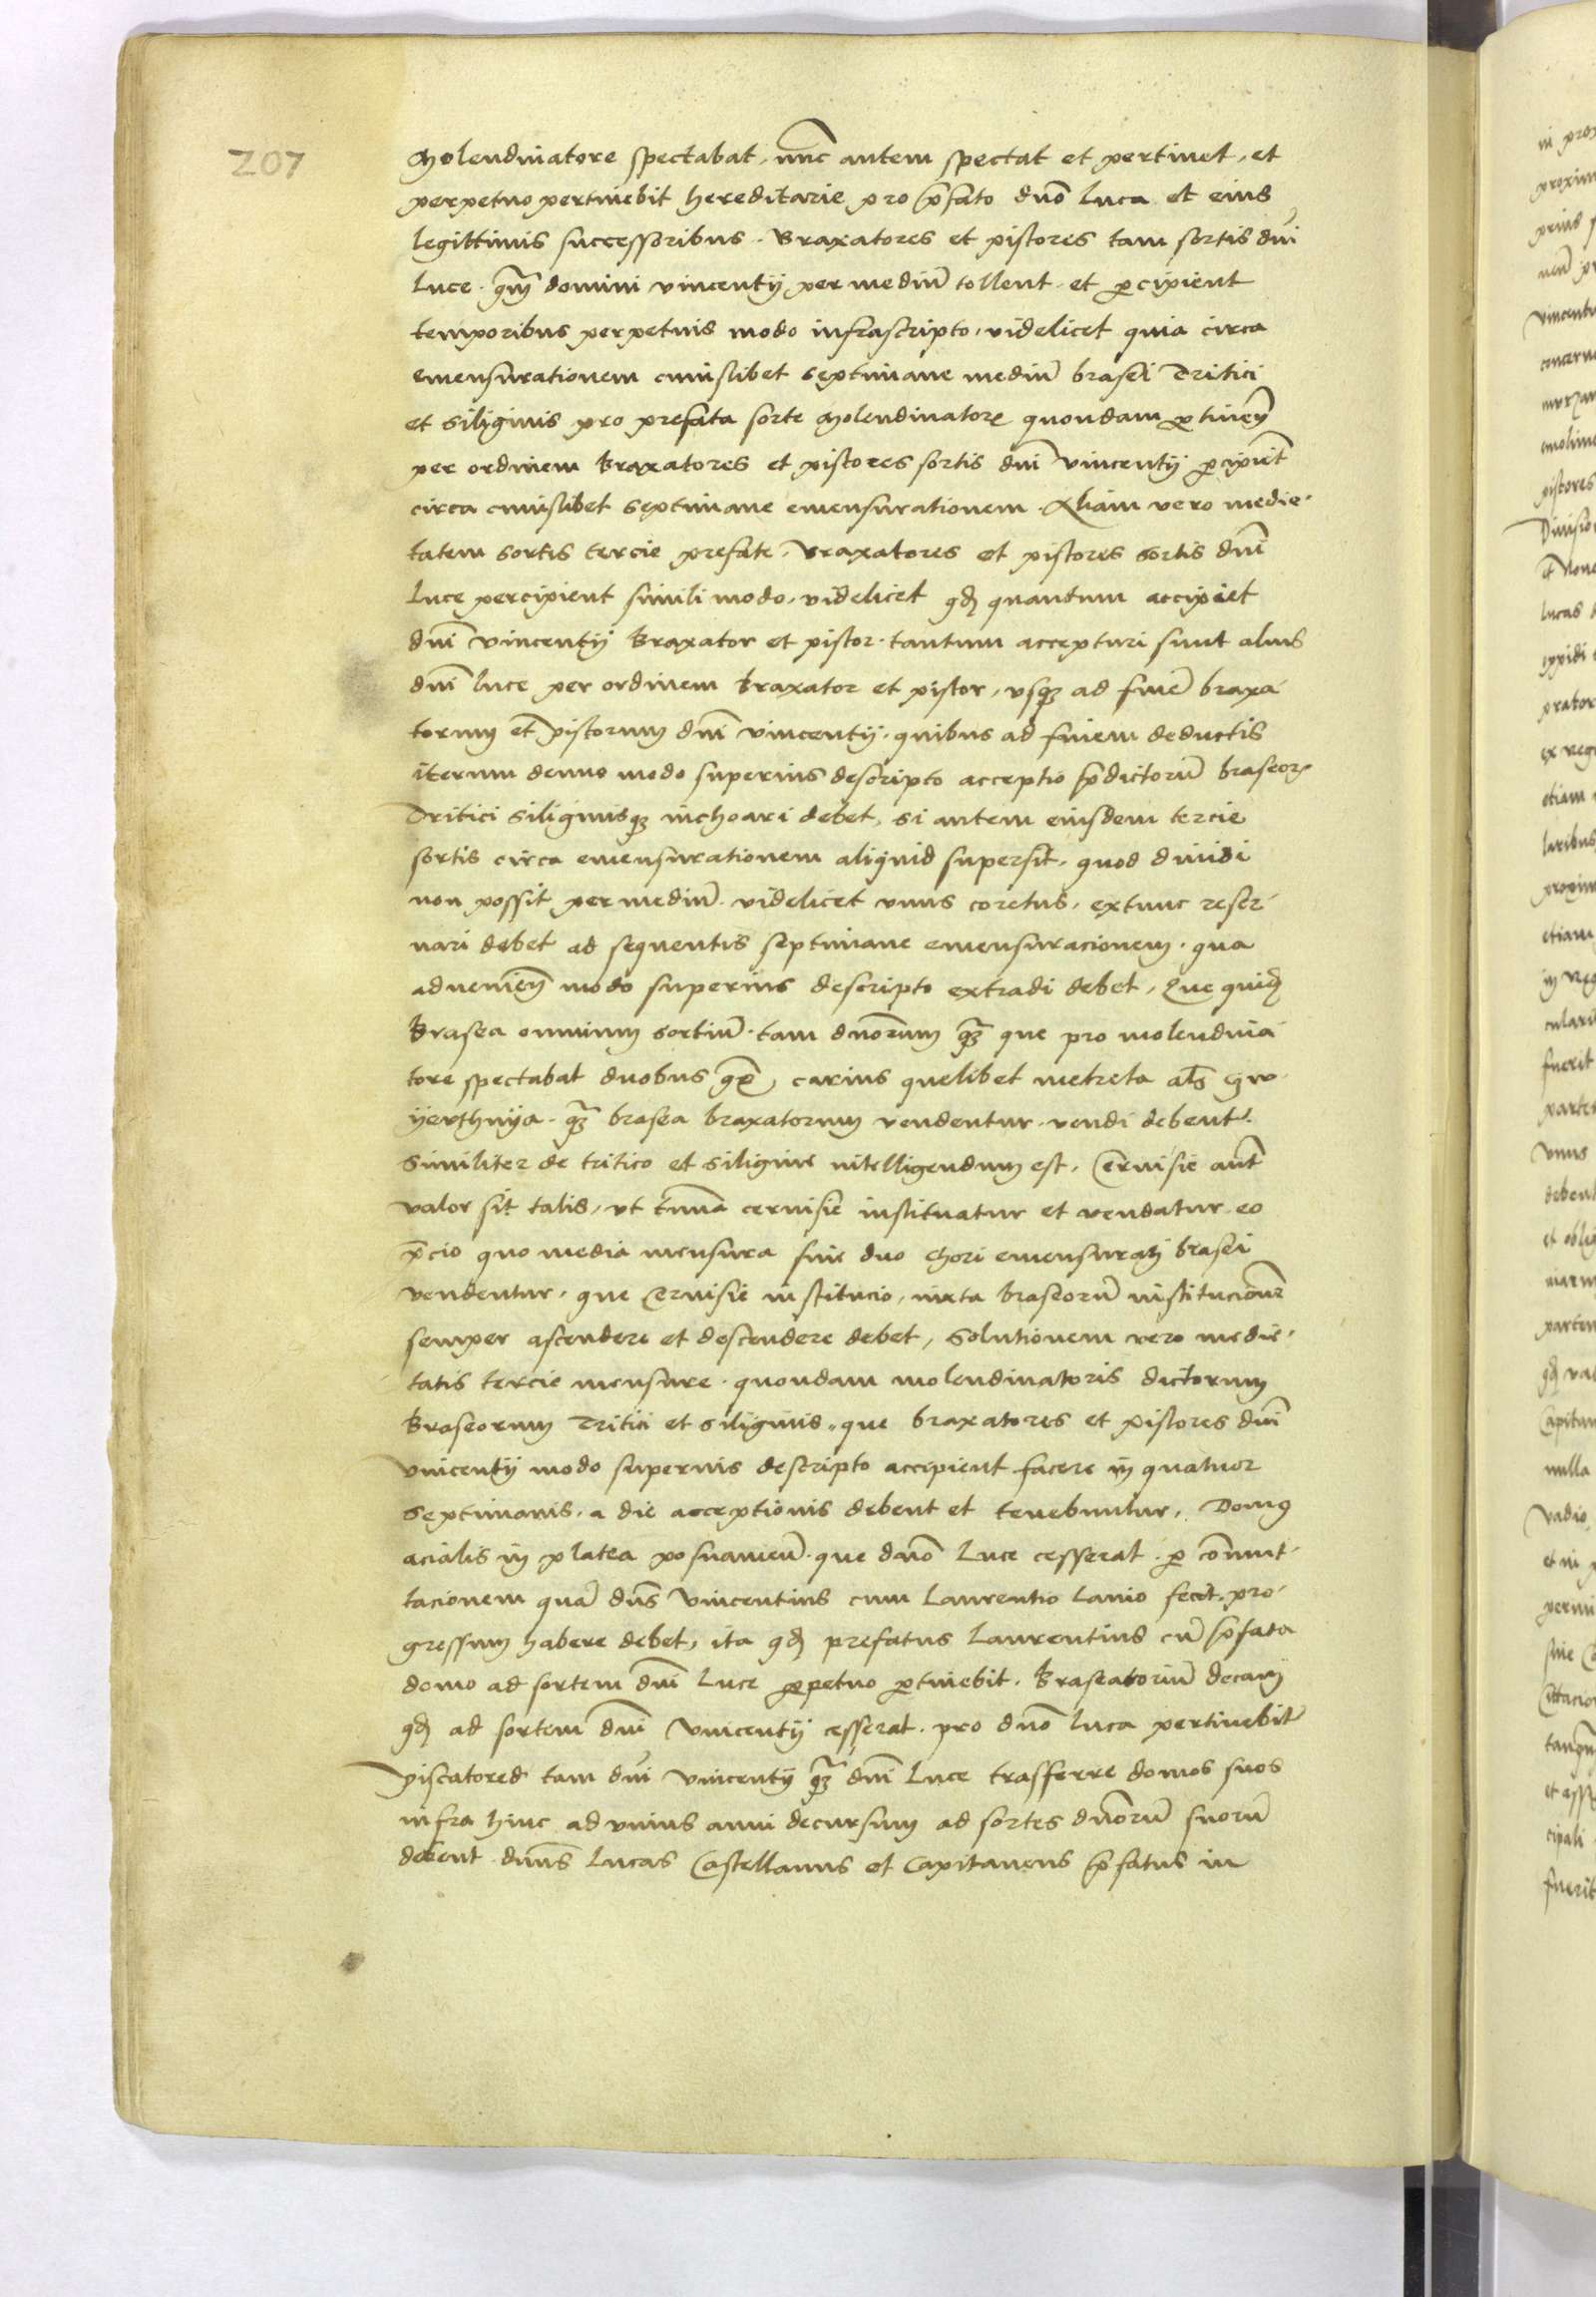 207
Molendinatore spectabat, nūc autem spectat et pertinet, et
perpetuo pertinebit hereditarie pro p̄fato dn̄o Luca et eius
legittimis successoribus. Braxatores et pistores tam sortis dn̄i
Luce. qm̄ domini vincentij per mediū tollent. et p̱cipient
temporibus perpetuis modo infrascripto, videlicet quia circa
emensurationem cuiuslibet septimane mediū brasei Tritici
et siliginis pro prefata sorte Molendinatore quondam p̱tineñ
per ordinem braxatores et pistores sortis dn̄i vincentij p̱cipiēt
circa cuiuslibet septimane emensurationem. Aliam vero medie-
tatem sortis tercie prefate, braxatores et pistores sortis dn̄i
Luce percipient simili modo, videlicet qđ quantum accipiet
dn̄i vincentij braxator et pistor. tantum accepturi sunt alius
dn̄i luce per ordinem braxator et pistor, vsqz ad finē braxa-
torum et pistorum dn̄i vincentij. quibus ad finem deductis
iterum denuo modo superius descripto acceptio p̄dictorū braseoꝝ
Tritici siliginisqz inchoari debet, si autem eiusdem tercie
sortis circa emensurationem aliquid supersit. quod diuidi
non possit per mediū. videlicet vnus coretus, extunc reser-
uari debet ad sequentis septimane emensuracionem. qua
adueniēñ modo superius descripto extradi debet, Que quiđ
brasea omnium sortiū. tam dn̄orum qz̄ que pro molendina-
tore spectabat duobus carius quelibet metreta al̄s
qz̄ brasea braxatorum vendentur. vendi debent.
Similiter de tritico et siligine intelligendum est, Ceruisie aut̄
valor sit talis, vt tūna ceruisie instituatur et vendatur eo
p̄cio quo media mensura siue duo chori emensurati brasei
vendentur, que ceruisie institucio, iuxta braseorū institucionē
semper ascendere et descendere debet, Solutionem vero medie-
tatis tercie mensure. quondam molendinatoris dictorum
braseorum Tritici et siliginis. que braxatores et pistores dn̄i
vincentij modo superius descripto accipient facere in quatuor
septimanis, a die acceptionis debent et tenebuntur, Domꝰ
acialis in platea posnanieñ. que dn̄o Luce cesserat. p̱ cōmut-
tacionem quā dn̄s Vincentius cum Laurentio Lanio fecit. pro-
gressum habere debet, ita qđ prefatus Laurentius cū p̄fata
domo ad sortem dn̄i Luce p̱petuo p̱tinebit. Braseatoriū decani
qđ ad sortem dn̄i Vincentij cesserat. pro dn̄o Luca pertinebit
Piscatores tam dn̄i Vincentij qz̄ dn̄i Luce trasferre domos suos
infra hinc ad vnius anni decursum ad sortes dn̄orū suorū
debent. dn̄us Lucas Castellanus et Capitaneus p̄fatus in